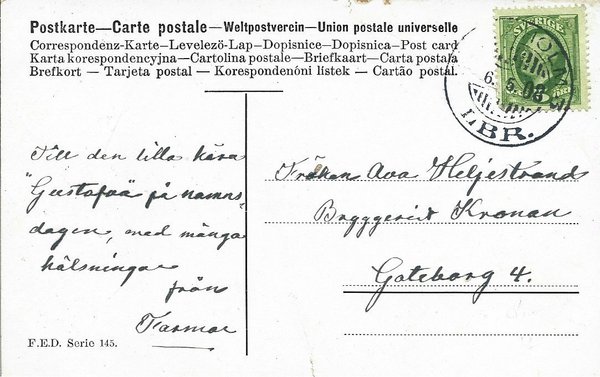 Postkarte—Carte postale—Weltpostverein—Union postale universelle
Correspondenz-Karte—Levelező-Lap—Dopisnice—Dopisnica—Post card
Karta korespondencyjna—Cartolina postale—Briefkaart—Carta postala
Brefkort — Tarjeta postal — Korespondenóni listek — Cartão postal.
SVERIGE
6.5.08
LBR.
Till den lilla kära
"Gustafaä på namns-
dagen, med många
hälsningar
från
Farmor
Fröken Ava Heljestrand
Bryggeriet Kronan
Göteborg 4.
F.E.D. Serie 145.